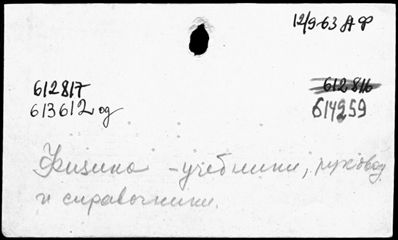 12/9-63 А Ф
612817
612816
613612 од
614959
Физика - учебники, руковод.
и справочники.